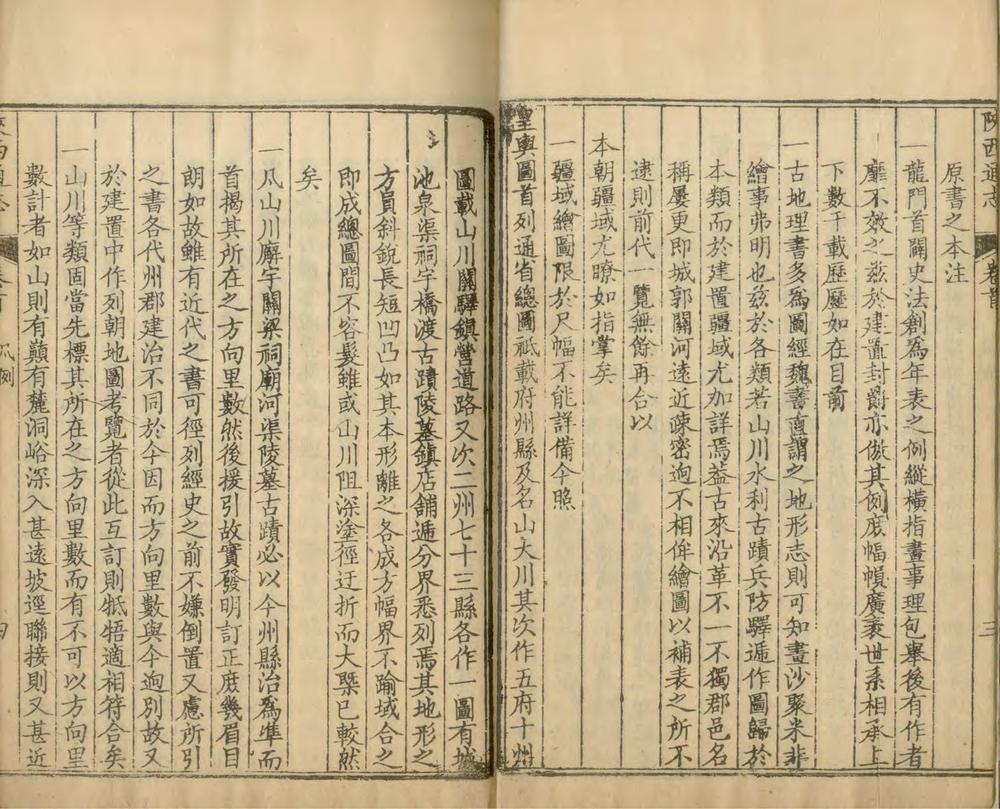 陝西通志 卷首 三
原書之本注
一龍門首闢史法創為年表之例縱橫指畫事理包舉後有作者
靡不效之茲於建置封爵亦倣其例庶幅幀廣袤世系相承上
下數千載歷歷如在目前
一古地理書多為圖經魏書直謂之地形志則可知畫沙聚米非
繪事弗明也茲於各類若山川水利古蹟兵防驛遞作圖歸於
本類而於建置疆域尤加詳焉葢古來沿革不一不獨郡邑名
稱屢更即城郭關河遠近疎密逈不相侔繪圖以補表之所不
逮則前代一覽無餘再合以
本朝疆域尤瞭如指掌矣
一疆域繪圖限於尺幅不能詳備今照
皇輿圖首列通省總圖祇載府州縣及名山大川其次作五府十州
圖載山川關驛鎮營道路又次二州七十三縣各作一圖有城
池泉渠祠宇橋渡古蹟陵墓鎮店舖遞分界悉列焉其地形之
方員斜銳長短凹凸如其本形離之各成方幅界不踰域合之
即成總圖間不容髮雖或山川阻深塗徑迂折而大槩已較然
矣
一凡山川廨宇關梁祠廟河渠陵墓古蹟必以今州縣治為準而
首揭其所在之方向里數然後援引故實發明訂正庶幾眉目
朗如故雖有近代之書可徑列經史之前不嫌倒置又慮所引
之書各代州郡建治不同於今因而方向里數與今逈別故又
於建置中作列朝地圖考覽者從此互訂則牴牾適相符合矣
一山川等類固當先標其所在之方向里數而有不可以方向里
數計者如山則有巔有麓洞峪深入甚遠坡逕聯接則又甚近
凡例